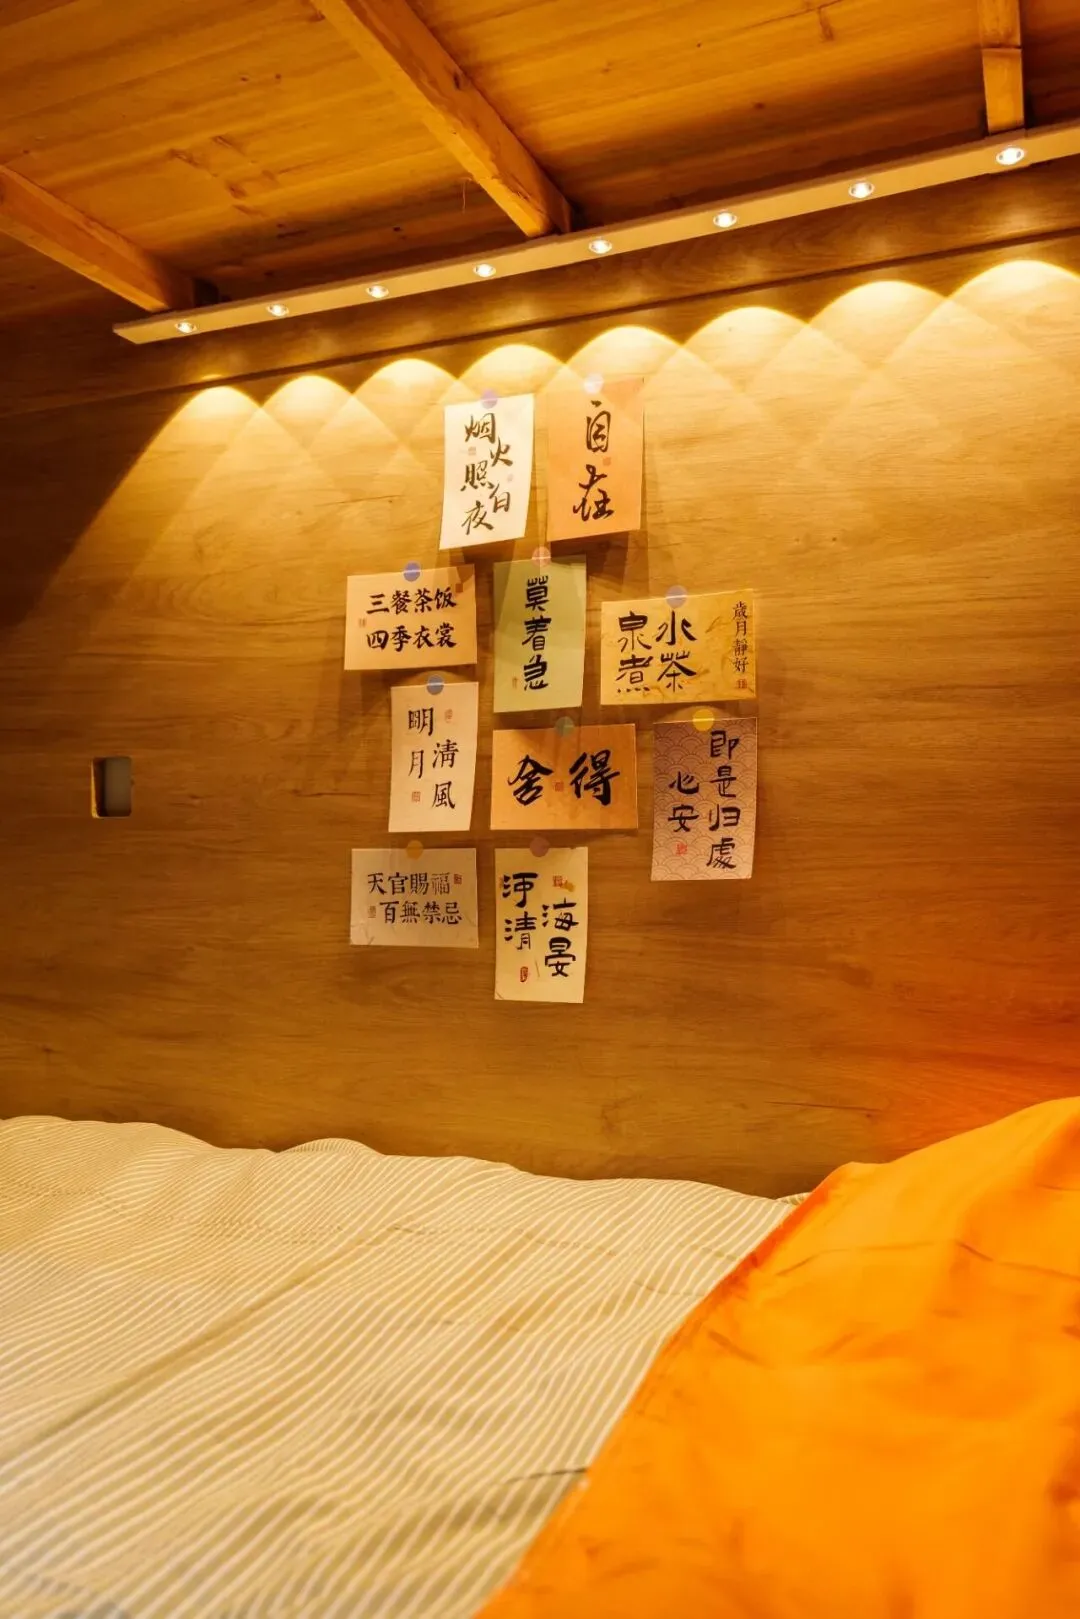 烟火照夜白
自在
三餐茶饭
四季衣裳
莫着急
泉水
煮茶
歲月靜好
明月
清風
舍得
心安
即是归處
天官賜福
百無禁忌
河清
海晏